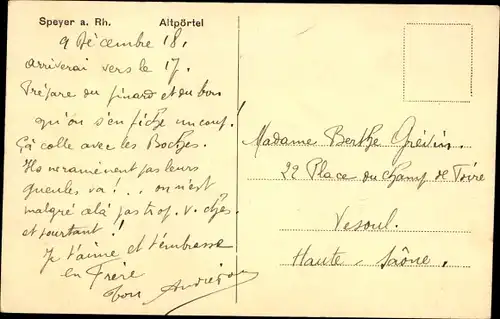 Speyer a. Rh. Altpörtel
9 Décembre 18.
arriverai vers le 17.
Prépare du pinard et du bon
qu'on s'en fiche un coup!
Ça colle avec les Boches
Ils ne ramènent pas leurs
gueules va! .. on n'est
malgré celà pas trop v. ches
et pourtant!
Je t'aime et t'embrasse
en Frère
ton
Madame Berthe Grévin.
22 Place du Champ de Foire
Vesoul.
Haute-Saône.